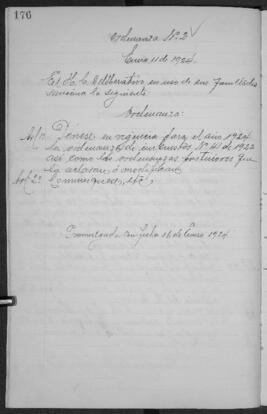 176
Ordenanza Nº 2
Enero 11 de 1924.
El H. C. Deliberativo en uso de sus facultades
sanciona la siguiente
Ordenanza:
Art 1º Pónese en vigencia para el año 1924
la ordenanza de impuestos Nº 41 de 1922
así como las ordenanzas posteriores que
la aclaran, ó modifican
Art. 2º Comuníquese, etc,
Promulgada en fecha 16 de Enero 1924